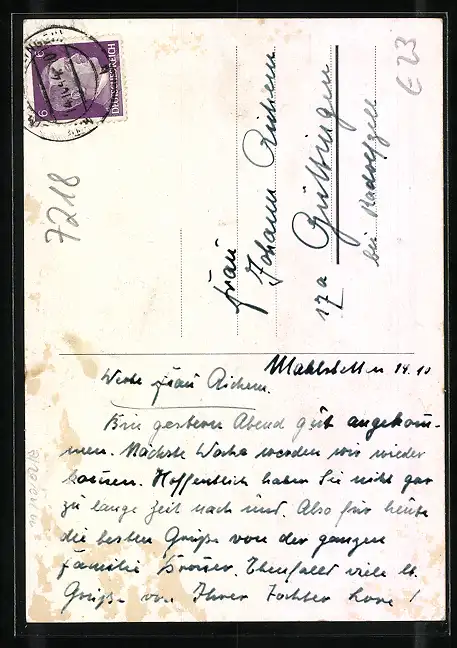 DEUTSCHES REICH
6
6
7218
E 23
Frau
Johann Richem
17a Güttingen
bei Radolfzell
Mahlstetten 14.10
Werte Frau Richem.
Bin gestern Abend gut angekom-
men. Nächste Woche werden wir wieder
kommen. Hoffentlich haben Sie nicht gar
zu lange Zeit nach uns. Also für heute
die besten Grüße von der ganzen
Familie Ebenfalls viele lb.
Grüße von Ihrer Tochter Lore!